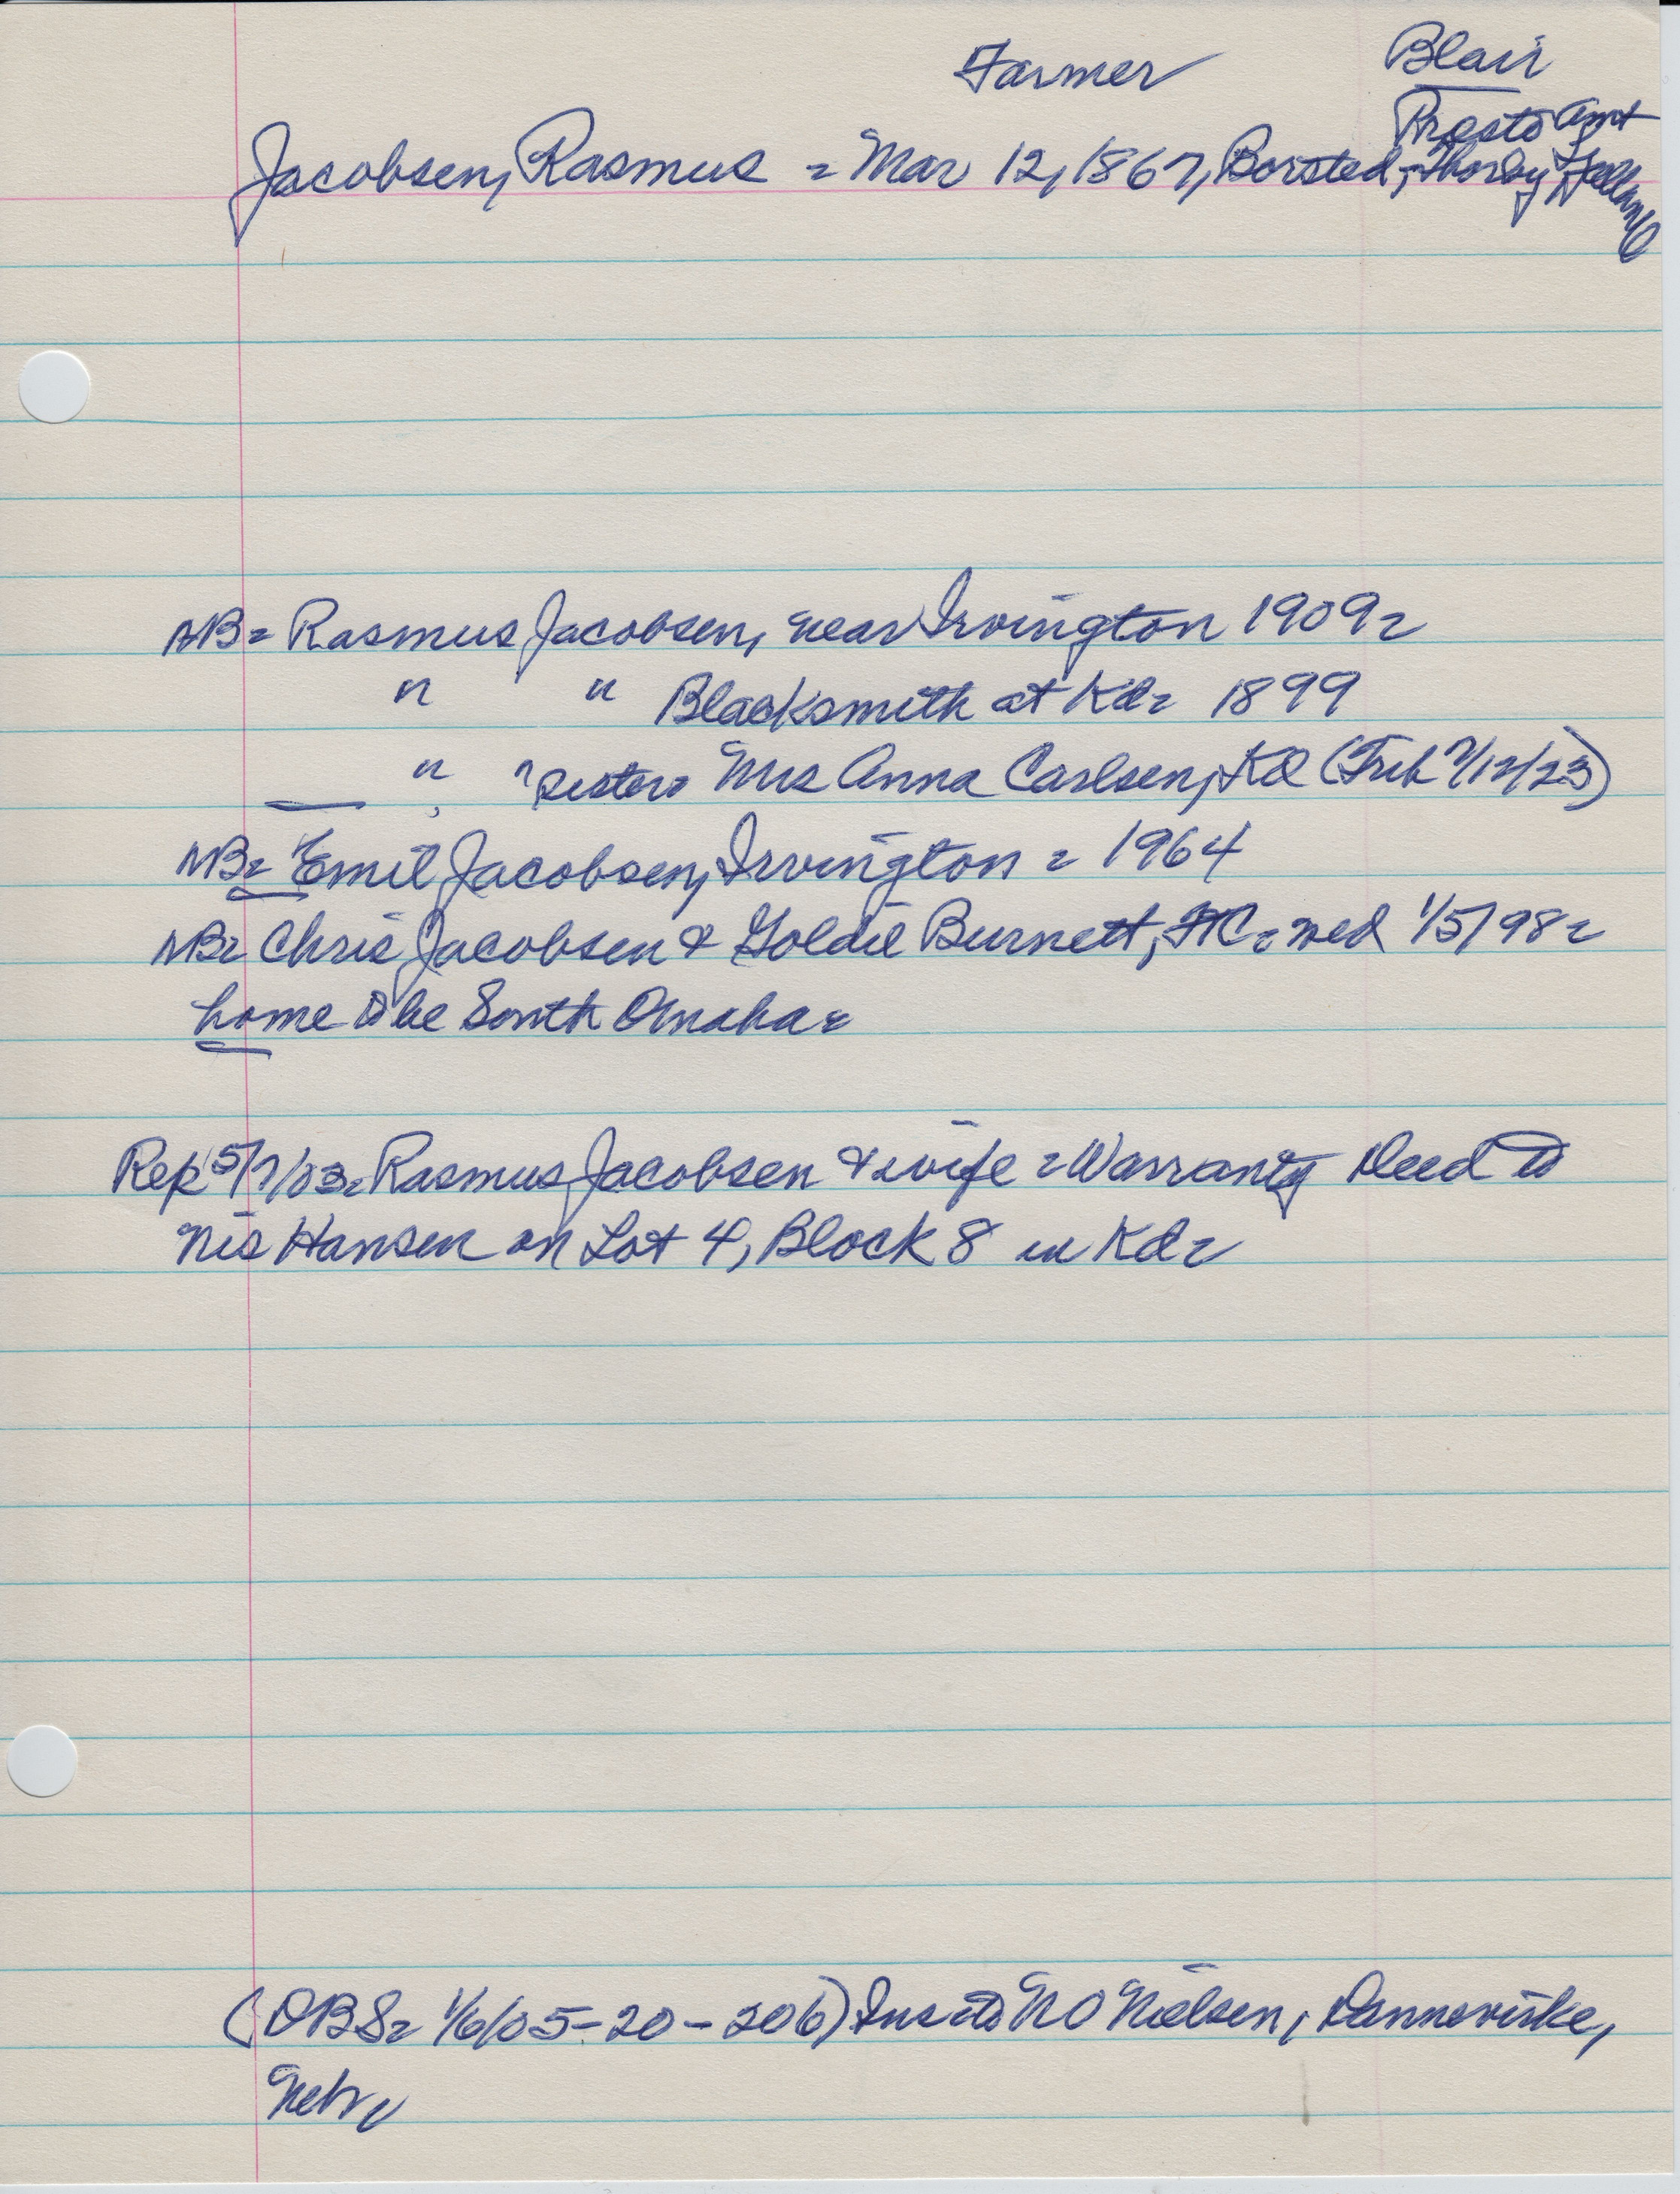 Farmer Blair
Præstø Amt
Jacobsen, Rasmus = Mar 12, 1867, Borsted, Thorby, Sjelland
NB= Rasmus Jacobsen, near Irvington 1909=
" " Blacksmith at Kd= 1899
" " sister= Mrs Anna Carlsen, Kd (Trib 7/12/23)
NB= Emil Jacobsen, Irvington = 1964
NB= Chris Jacobsen & Goldie Burnett, FC= wed 1/5/98=
home to be South Omaha=
Rep 5/7/03= Rasmus Jacobsen & wife = Warranty Deed to
Nis Hansen on Lot 4, Block 8 in Kd=
(DBS= 1/6/05-20-206) Ins to N O Nielsen, Dannevirke,
Nebr